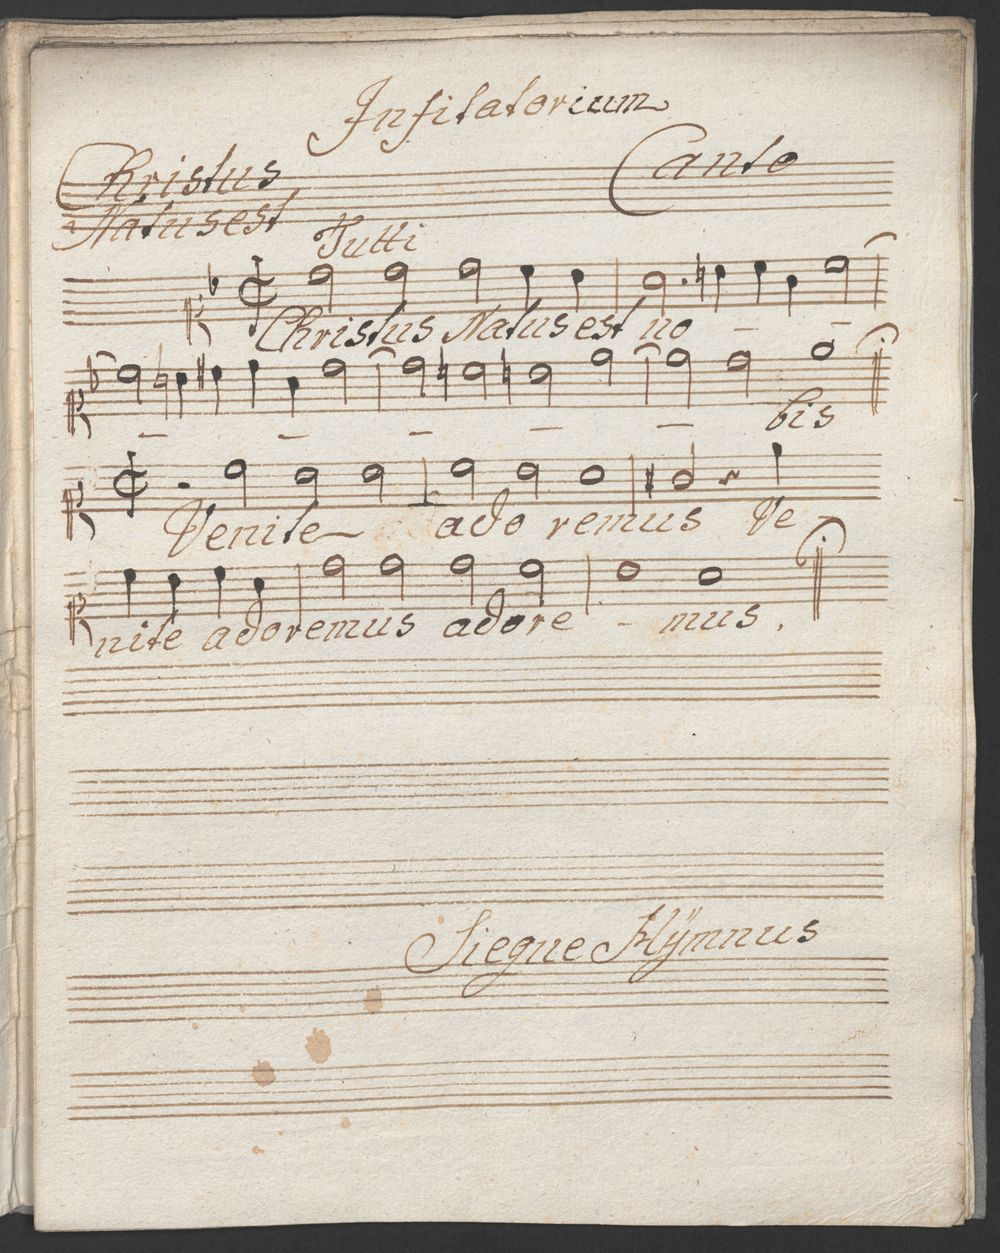 Infitatorium
Christus Canto
Natus est
Tutti
Christus Natus est no - -
- - - - - bis
Venite adoremus Ve -
nite adoremus adore - mus.
Siegue Hÿmnus